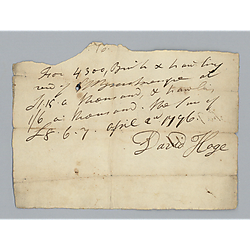 To
For 4300, Brick & hawling
rec'd of at
a thousand & hawling
1/6 a thousand. the sum of
£8. 6. 7. april 2d 1796.
David Hoge